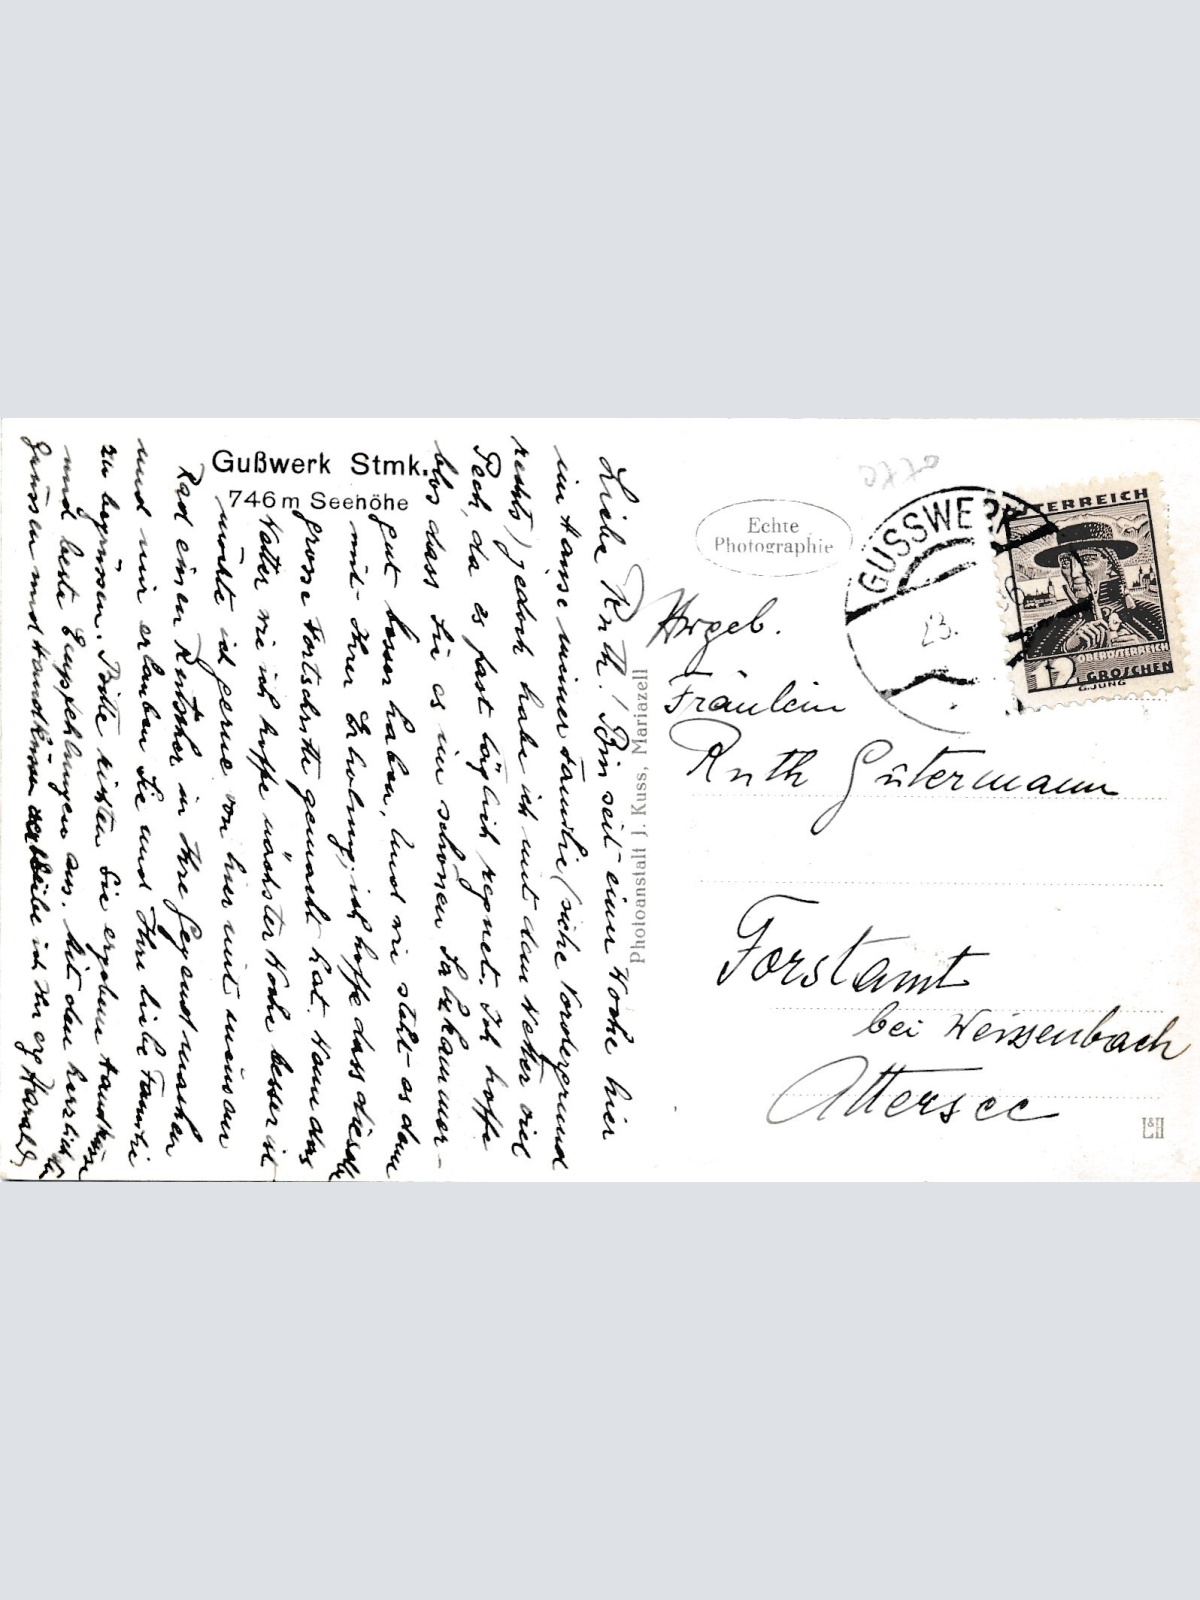 Gußwerk Stmk.
746 m Seehöhe
Liebe Ruth! Bin seit einer Woche hier
im Hause meiner Familie (siehe Vordergrund
rechts) jedoch habe ich mit dem Wetter viel
Pech, da es fast täglich regnet. Ich hoffe
blos dass Sie es im schönen Salzkammer-
gut besser haben. Und wie steht es denn
mit Ihrer Erholung; ich hoffe dass dieselbe
grosse Fortschritte gemacht hat. Wenn das
Wetter wie ich hoffe nächster Woche besser ist
würde ich gerne von hier mit meinem
Rad einen Rutscher in Ihre Gegend machen
und mir erlauben Sie und Ihre liebe Familie
zu begrüssen. Bitte richten Sie ergebene Handküsse
und beste Empfehlungen aus. Mit den herzlichsten
Grüssen und Handküssen verbleibe ich Ihr erg. Harald
Photoanstalt J. Kuss, Mariazell
Echte
Photographie
GUSSWERK
23.
ÖSTERREICH
OBERÖSTERREICH
12 GROSCHEN
G.JUNG
Hrgeb.
Fräulein
Ruth Gütermann
Forstamt
bei Weissenbach
Attersee
L&H